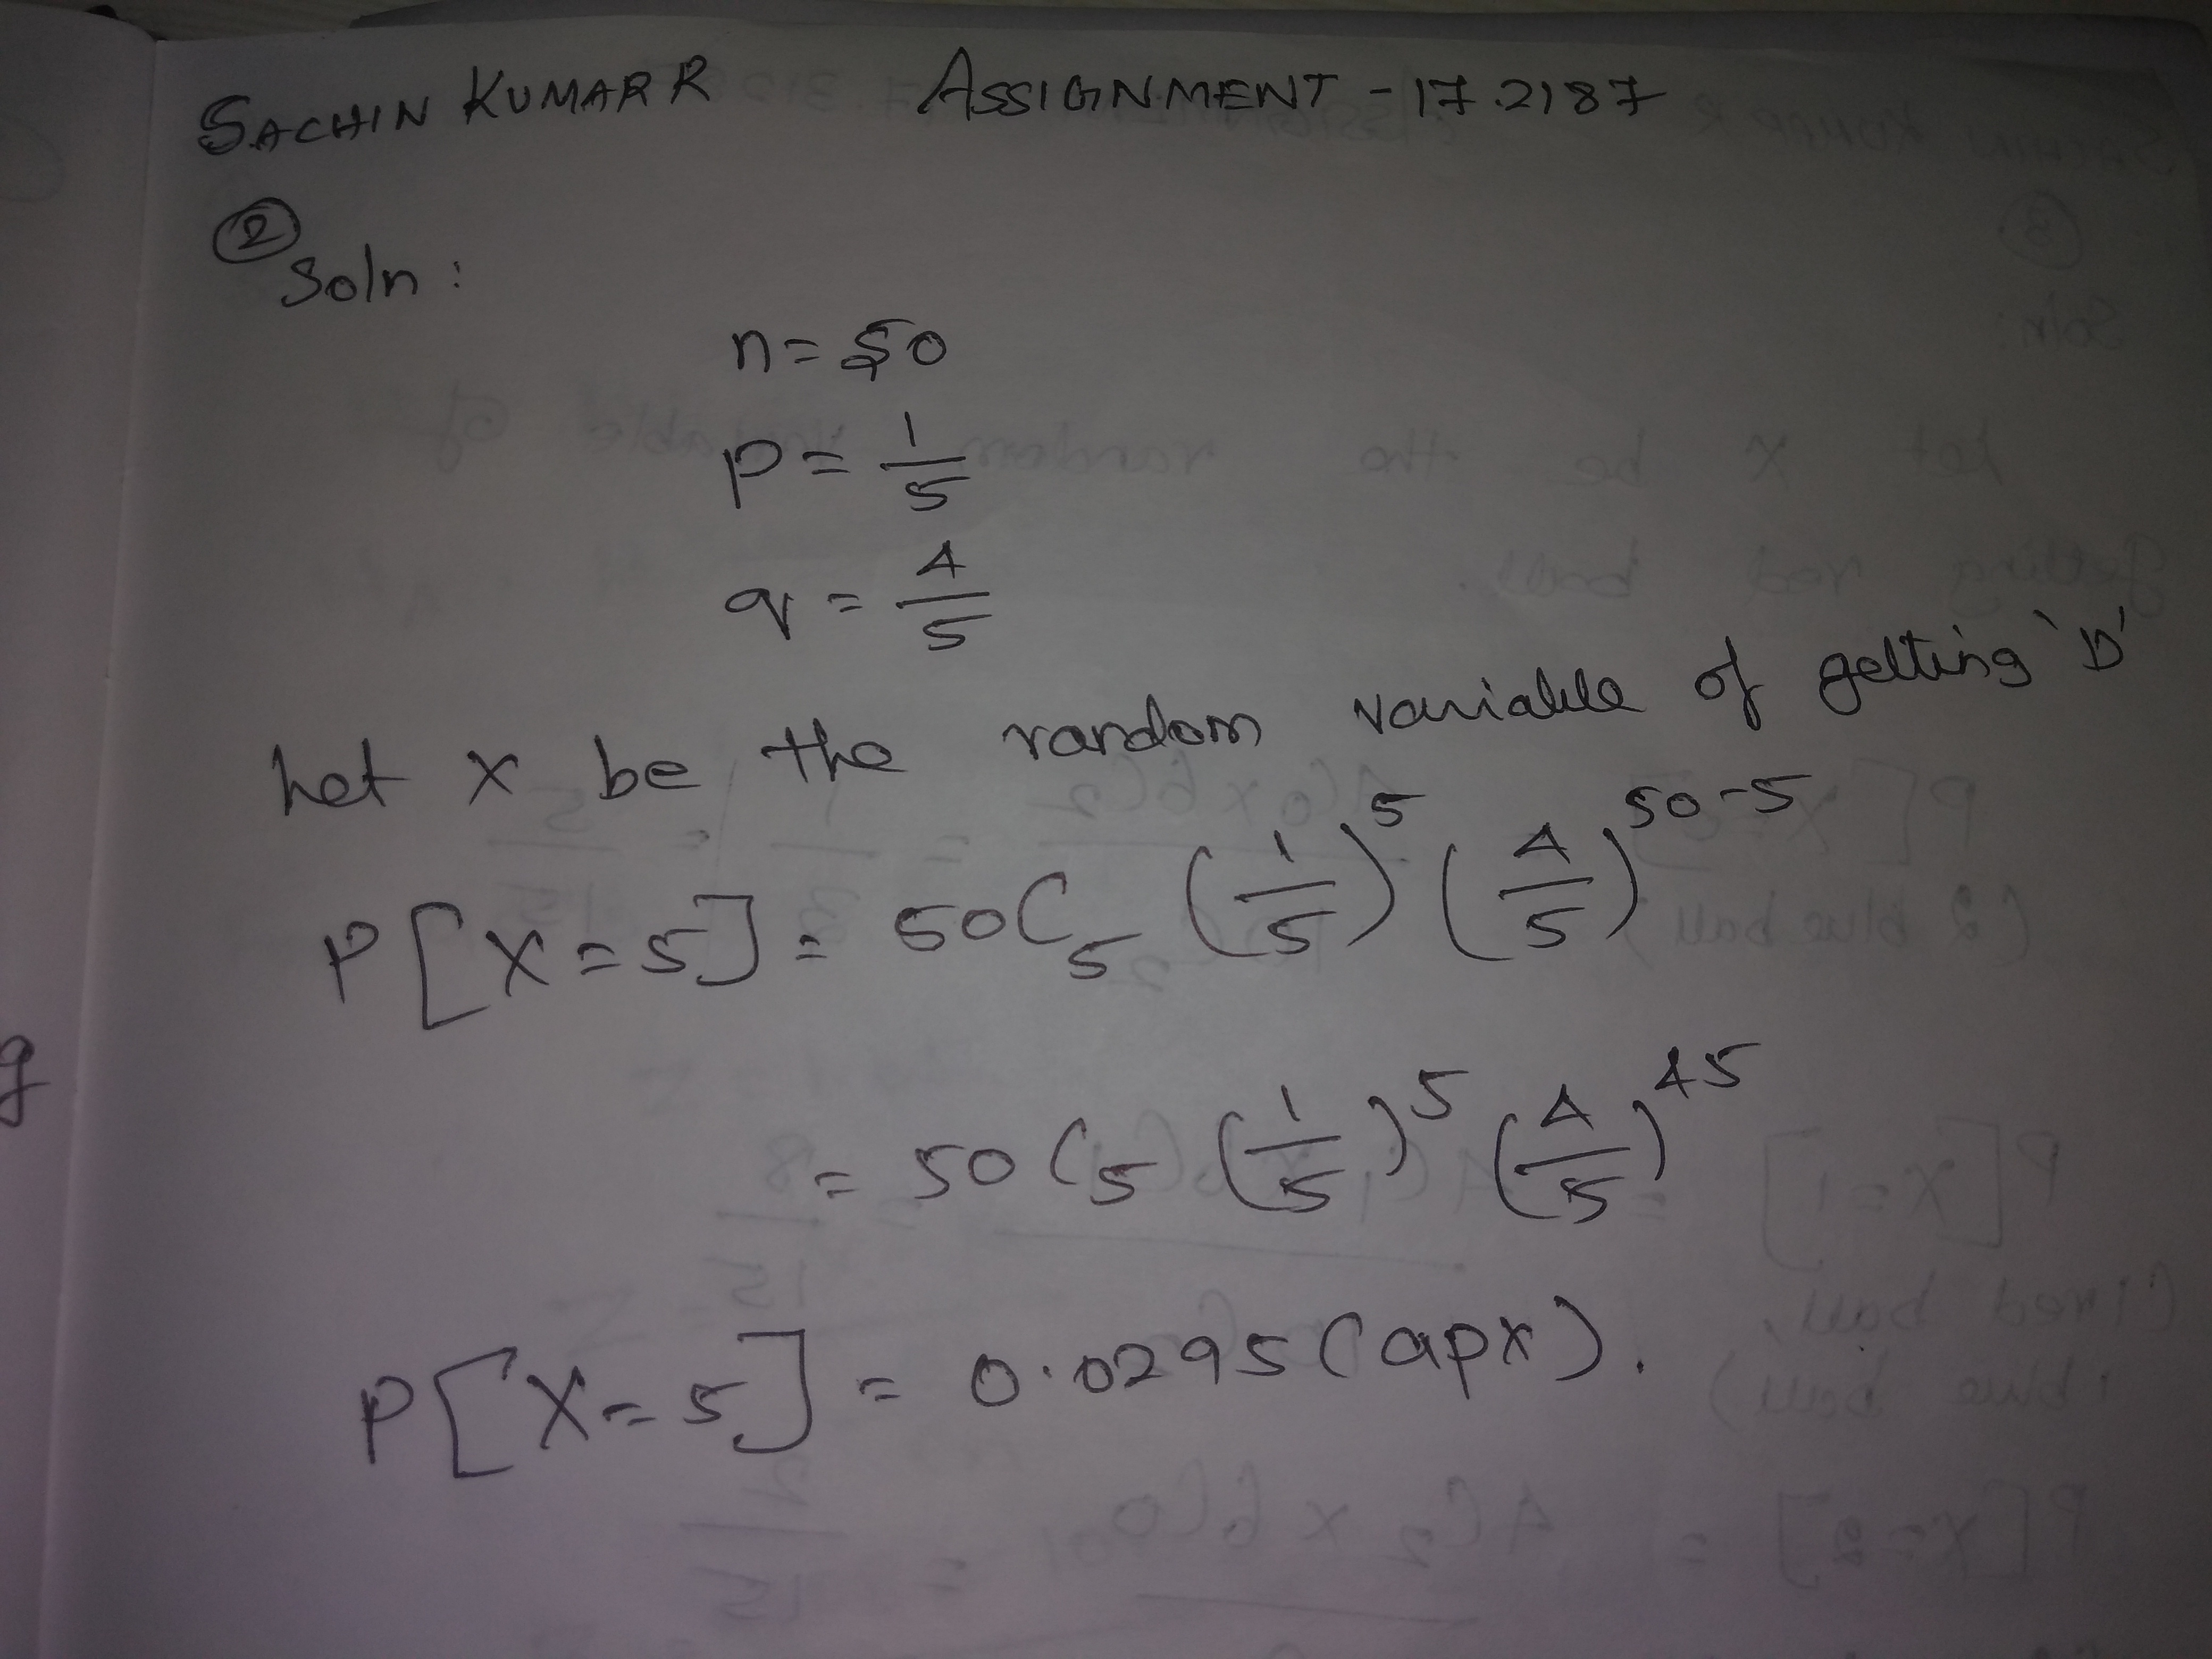 SACHIN KUMAR R ASSIGNMENT - 17.2187
②
Soln :
n = 50
p = 1/5
q = 4/5
Let X be the random variable of getting 'D'
P[X=5] = 50C₅ (1/5)⁵ (4/5)⁵⁰⁻⁵
= 50C₅ (1/5)⁵ (4/5)⁴⁵
g
P[X=5] = 0.0295 (apx).